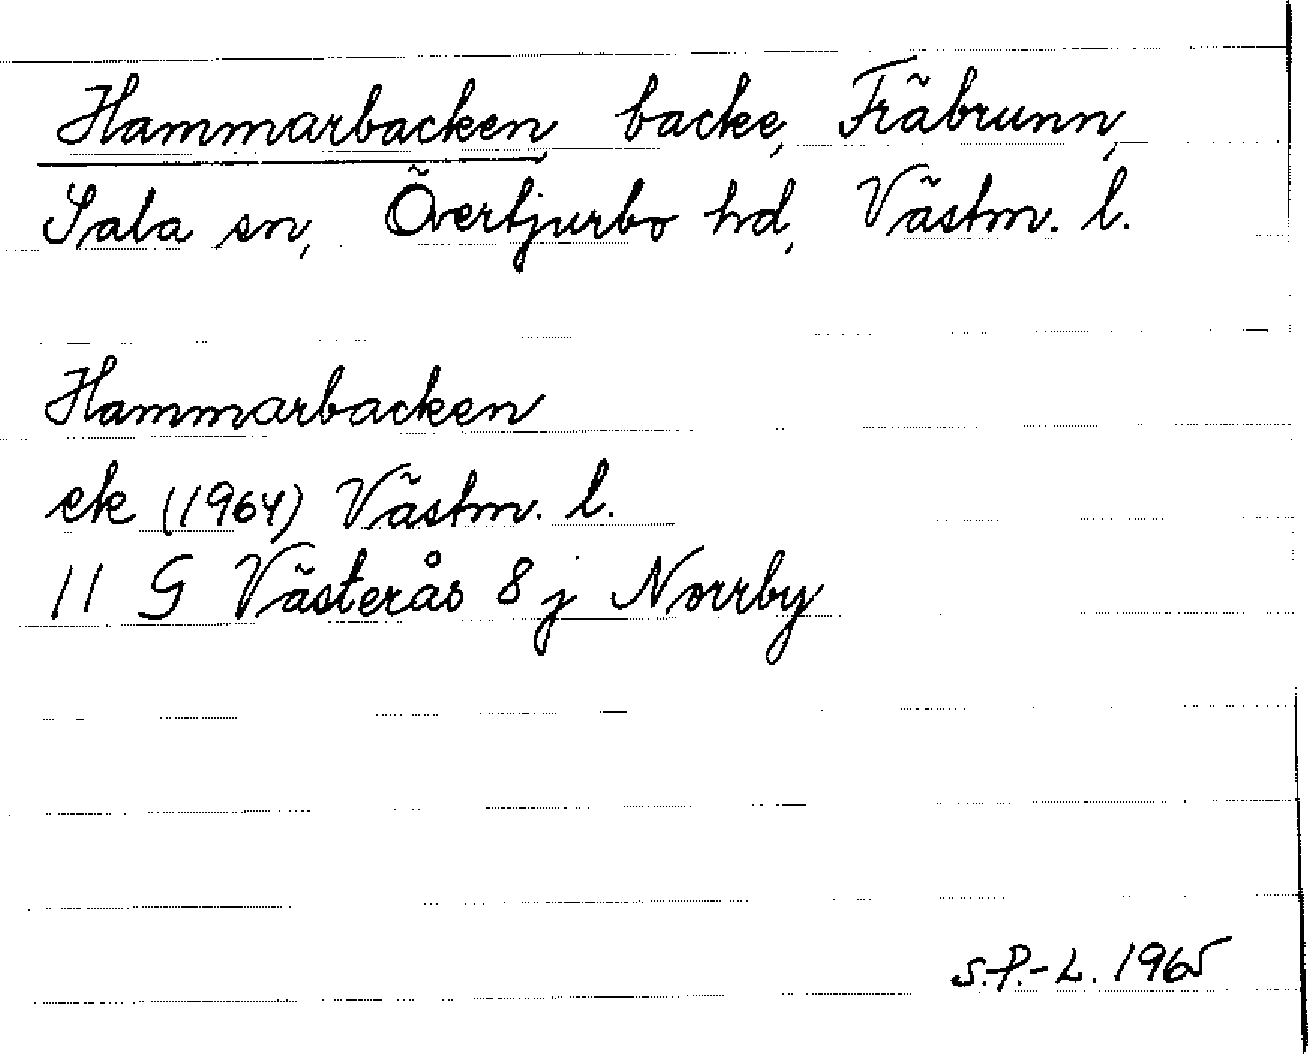 Hammarbacken, backe, Fräbrunn,
Sala sn, Övertjurbo hd, Västm. l.
Hammarbacken
ek (1964) Västm. l.
11 G Västerås 8 j Norrby
S.P.-L. 1965